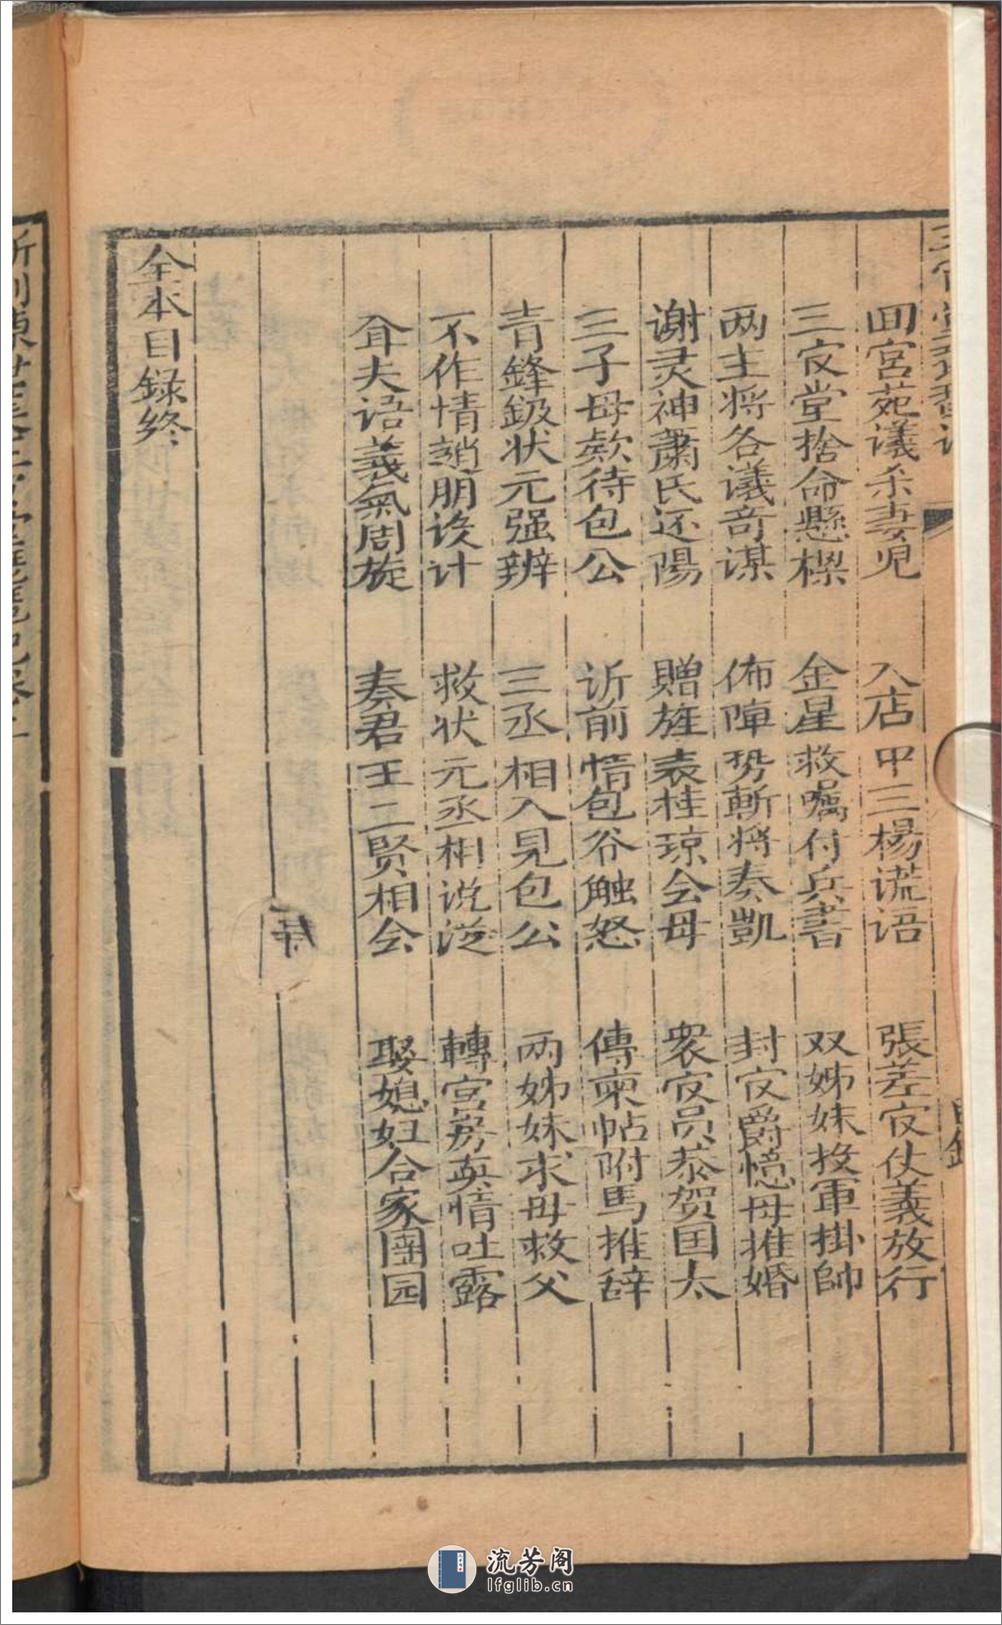 回宮苑议杀妻児　入店中三楊谎语　張差官仗義放行
三官堂捨命懸樑　金星救嘱付兵書　双姊妹投軍掛帥
两主将各议奇谋　佈陣势斬将奏凱　封官爵憶母推婚
谢灵神蕭氏还陽　贈旌表桂琼会母　衆官员恭贺国太
三子母欵待包公　訴前情包谷触怒　傳柬帖附馬推辞
青鋒鈒状元强辨　三丞相入見包公　两姊妹求母救父
不作情趙朋设计　救状元丞相说　轉宮房英情吐露
夫语義氣周旋　奏君王二賢相会　娶媳妇合家團园
全本目録終
目録
流芳阁
lfglib.cn